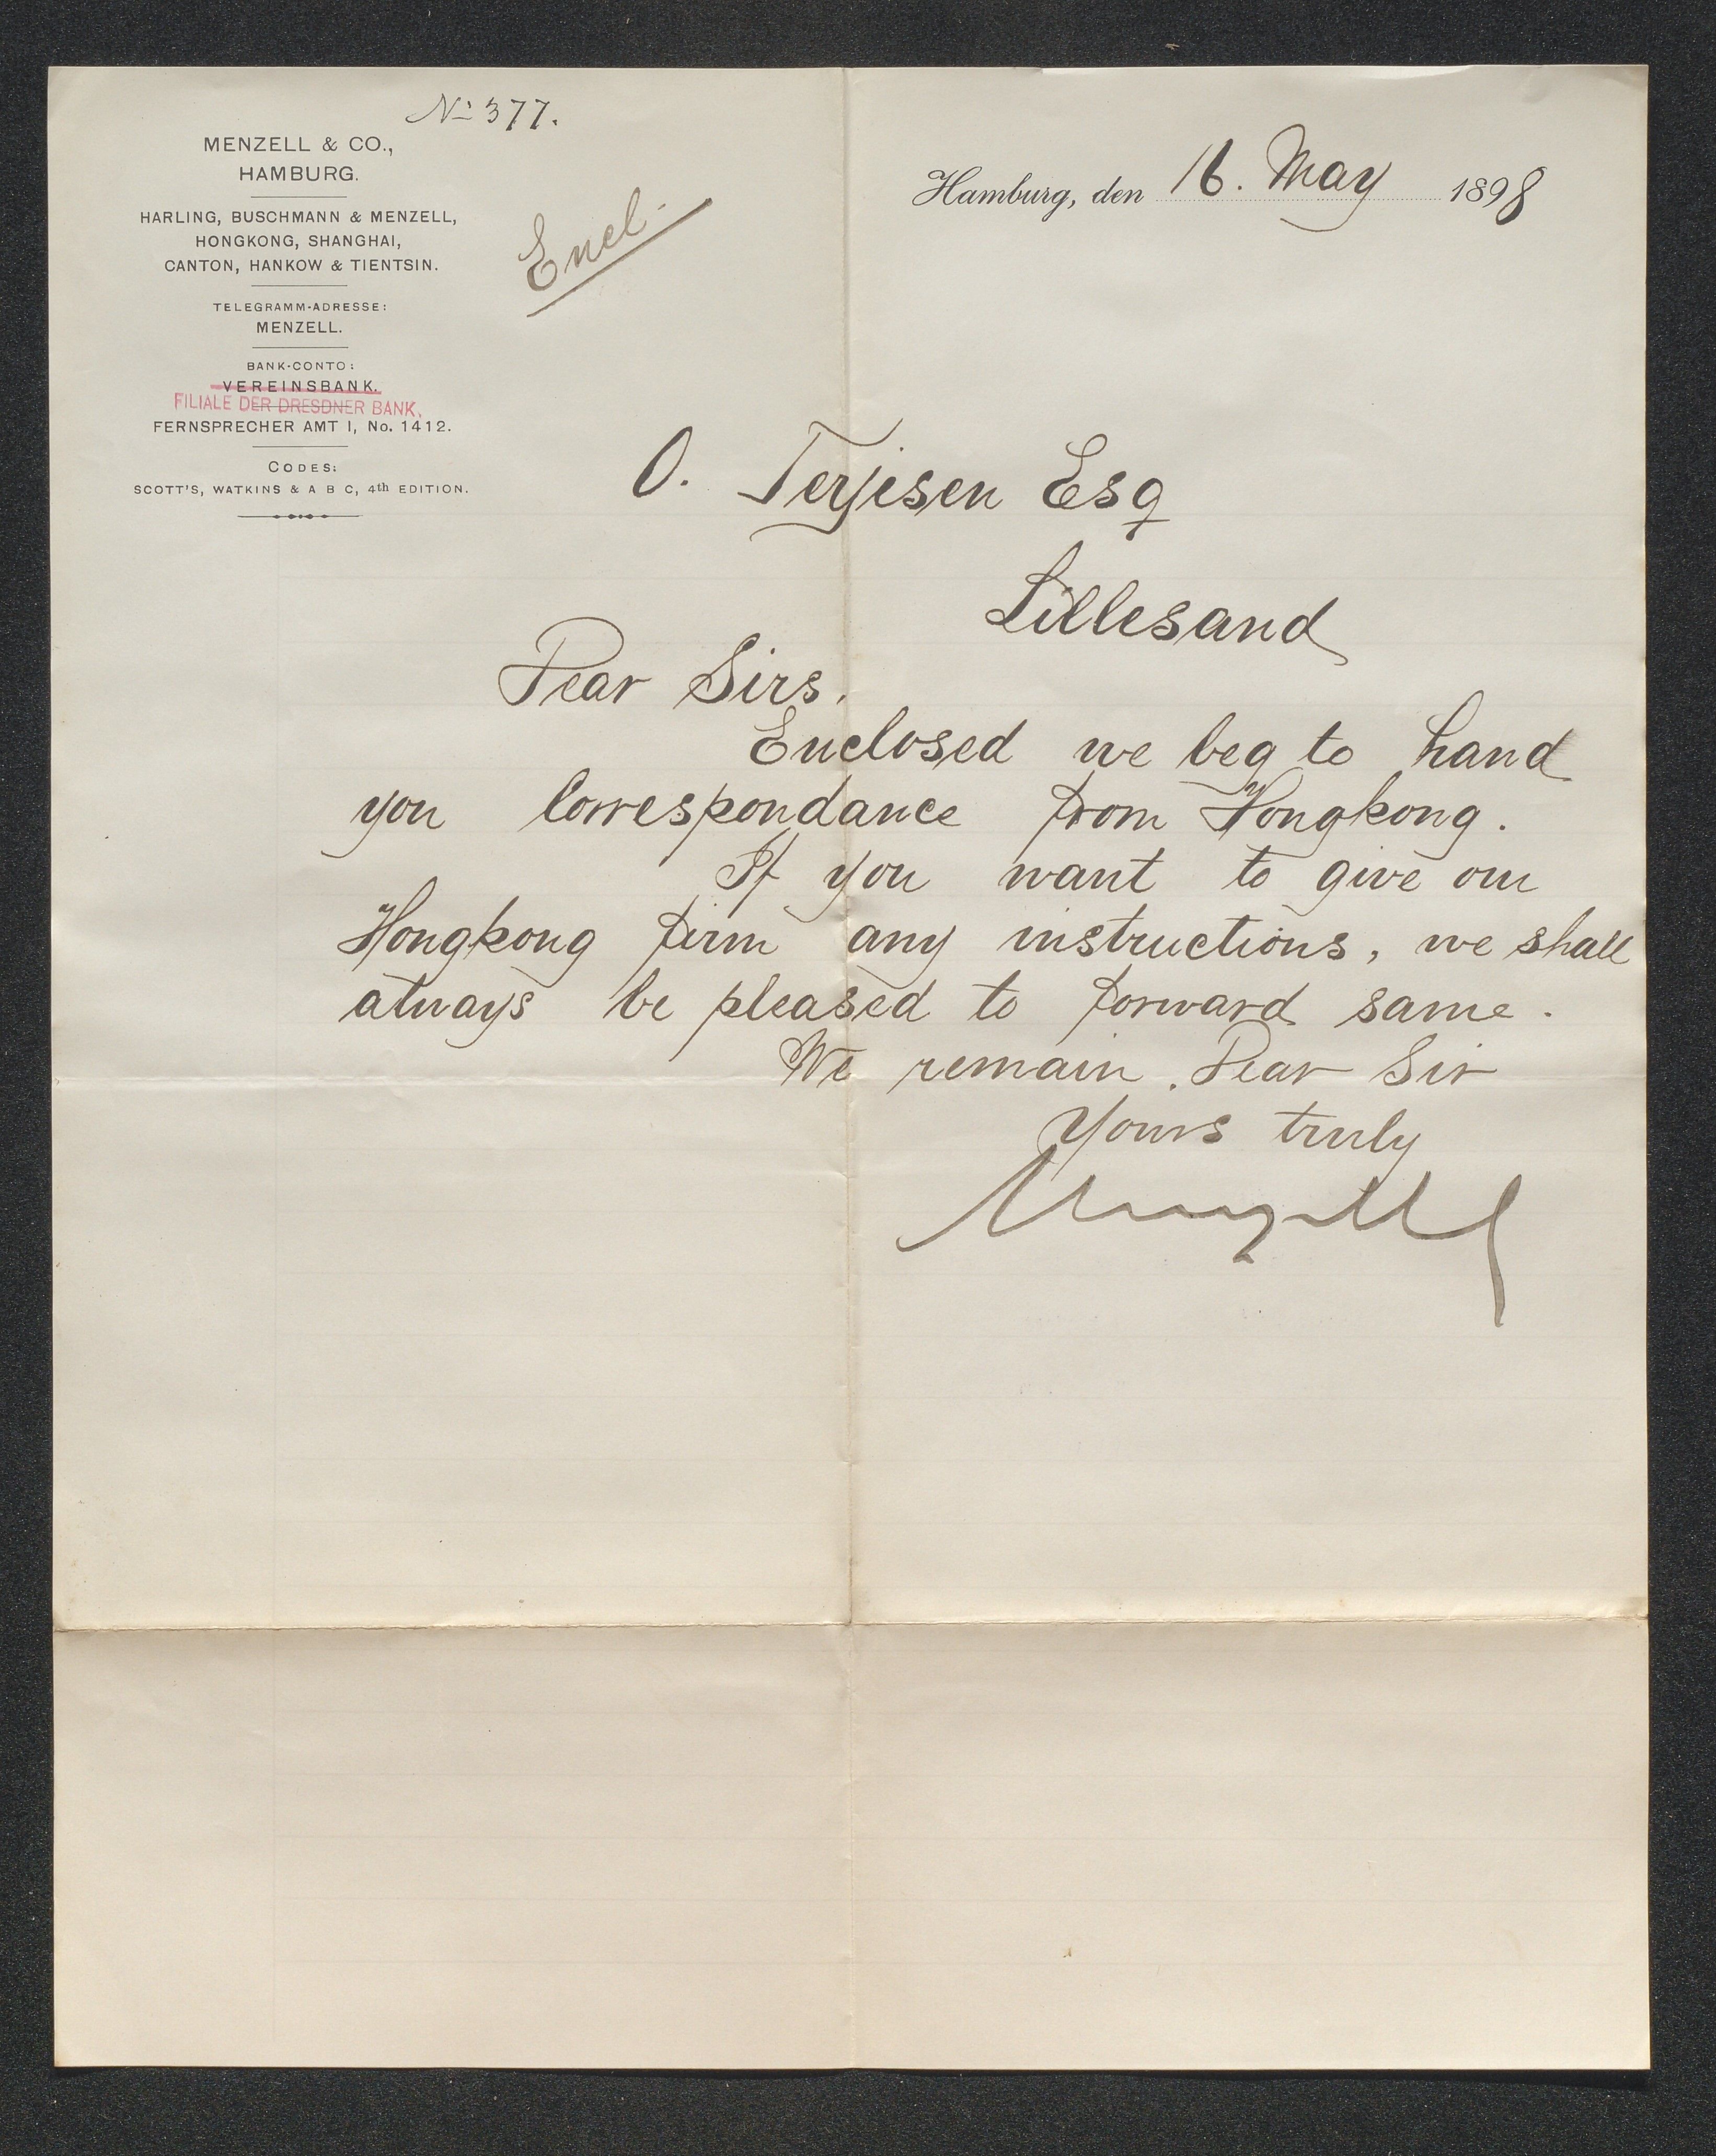 No 377.
MENZELL & CO.,
HAMBURG.
HARLING, BUSCHMANN & MENZELL,
HONGKONG, SHANGHAI,
CANTON, HANKOW & TIENTSIN.
TELEGRAMM-ADRESSE:
MENZELL.
BANK-CONTO:
VEREINSBANK.
FILIALE DER DRESDNER BANK.
FERNSPRECHER AMT I, No. 1412.
CODES:
SCOTT'S, WATKINS & A B C, 4th EDITION.
Encl.
Hamburg, den 16. May 1898
O. Terjesen Esq
Lillesand
Dear Sirs.
Enclosed we beg to hand
you correspondance from Hongkong.
If you want to give our
Hongkong firm any instructions, we shall
always be pleased to forward same.
We remain. Dear Sir
Yours truly
Menzell